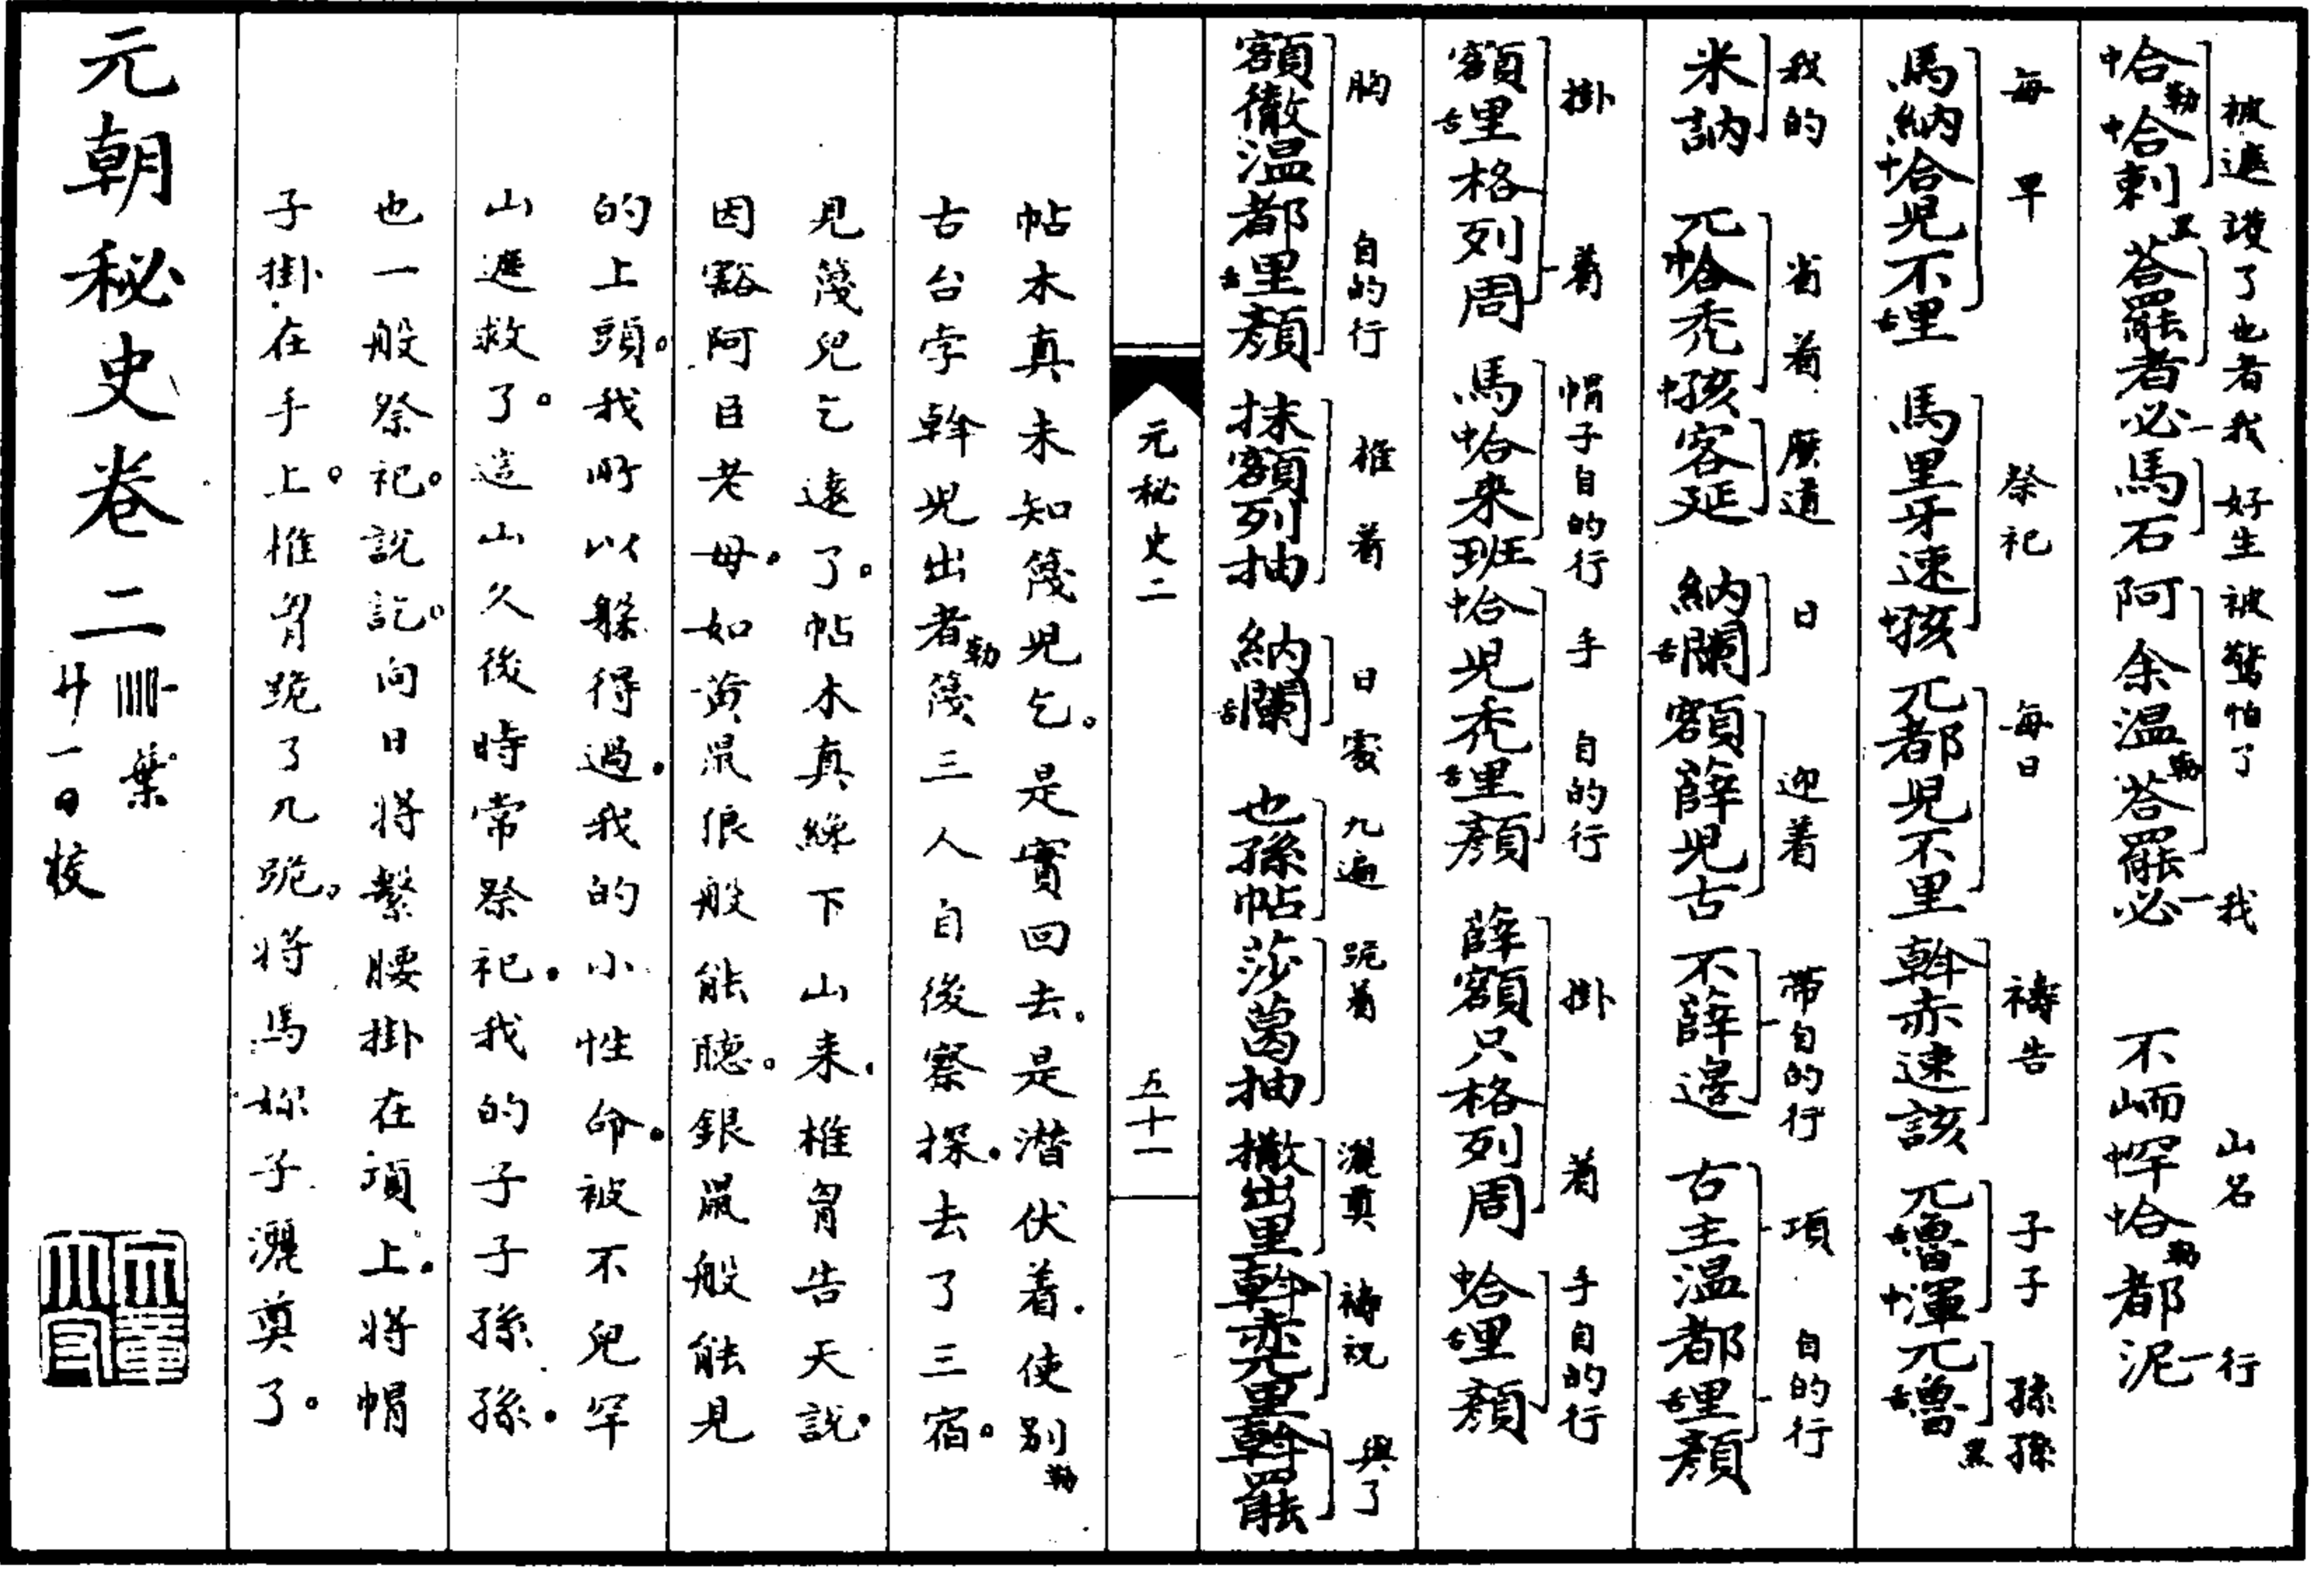 被遮護了也者我 好生被驚怕了 我 山名 行
中合勒中合剌黑荅罷者必 馬石 阿余温勒荅罷必 不峏中罕中合勒都泥
每早 祭祀 每日 禱告 子子 孫孫
馬納中合兒不舌里 馬里牙速中孩 兀都兒不里 斡赤速該 兀舌魯中渾兀舌魯黑
我的 省着 麽道 日 迎着 帶自的行 項 自的行
米訥 兀中合禿中孩 客延 納舌闌 額薛兒古 不薛邊 古主温都舌里顏
掛 着 帽子自的行 手 自的行 掛 着 手自的行
額舌里格列周 馬中合来班中合兒禿舌里顏 薛額只格列周 中合舌里顏
胸 自的行 椎着 日處 九遍 跪着 灑奠 禱祝 與了
額徹温都舌里顏 抹額列抽 納舌闌 也孫帖 莎葛抽 撒出里斡赤里斡罷
元秘史二 五十一
帖木真未知篾兒乞。是實回去。是潛伏着。使别勒
古台孛斡兒出者勒篾三人自後察探。去了三宿。
見篾兒乞遠了。帖木真纔下山来。椎胷告天說。
因豁阿臣老母。如黄鼠狼般能聽。銀鼠般能見
的上頭。我所以躲得過。我的小性命。被不兒罕
山遮救了。這山久後時常祭祀。我的子子孫孫。
也一般祭祀。說訖。向日將繫腰掛在項上。將帽
子掛在手上。椎胷跪了九跪。將馬妳子灑奠了。
元朝秘史卷二
葉
廿一日校